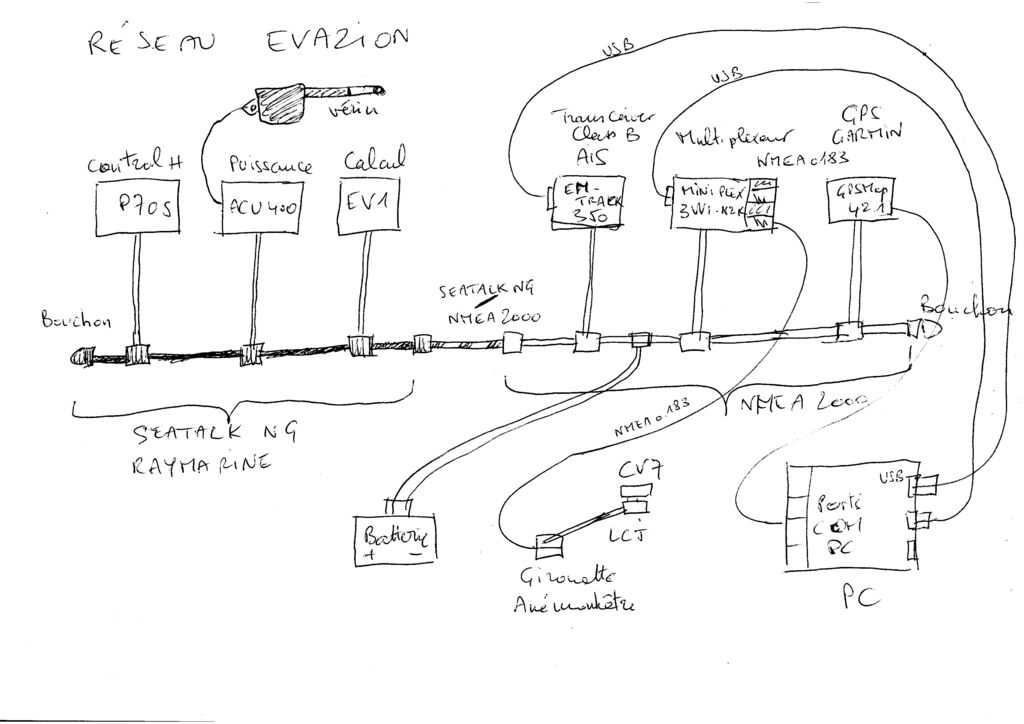 RÉSEAU EVAZION
USB
USB
vérin
Transceiver
Class B
AIS
GPS
GARMIN
Control H
Puissance
Calcul
Multiplexeur
NMEA 0183
P70S
ACU 400
EV1
EM-
TRACK
350
MINIPLEX
3Wi-N2K
GPSMap
421
SEATALK NG
NMEA 2000
Bouchon
Bouchon
SEATALK NG
RAYMARINE
NMEA 2000
NMEA 0183
CV7
LCJ
Batterie
+ -
Girouette
Anémomètre
USB
Ports
COM
PC
PC